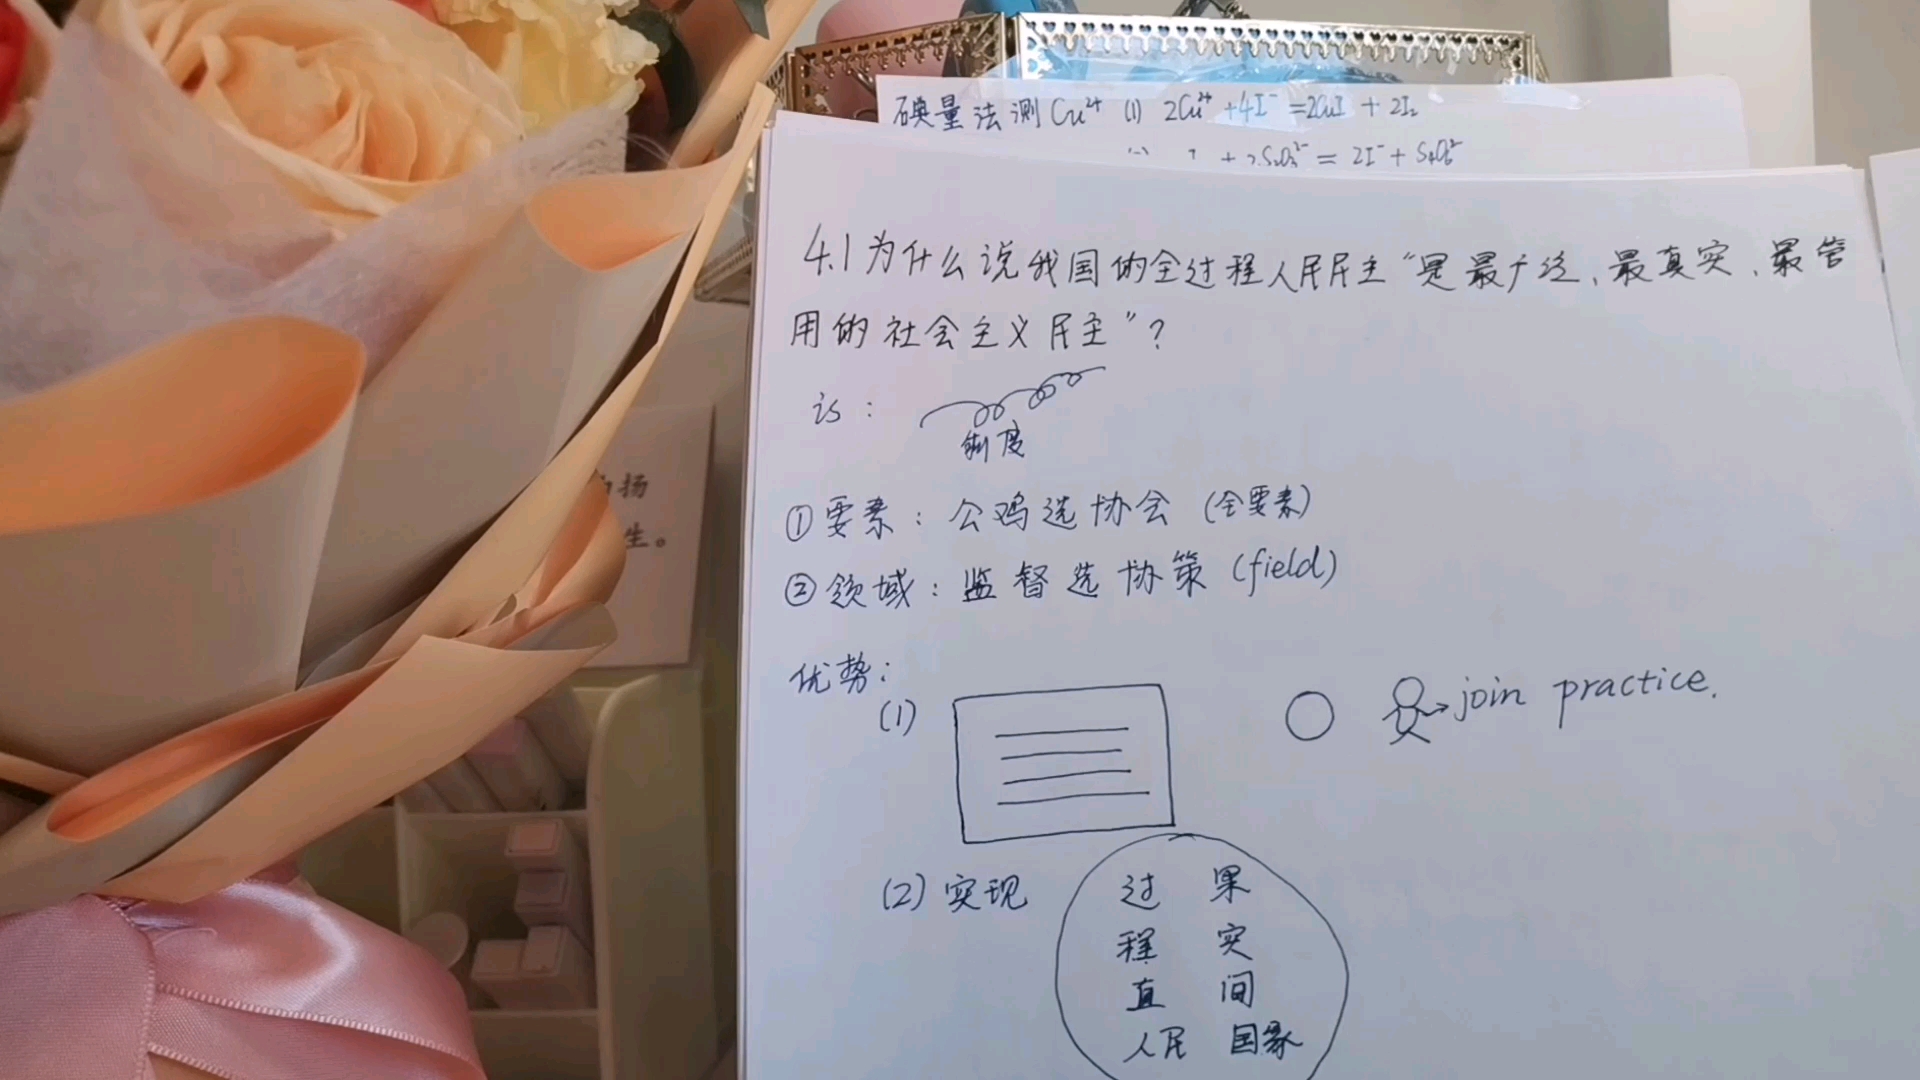 碘量法测Cu²⁺ (1) 2Cu²⁺+4I⁻=2CuI+2I₂
+2S₂O₃²⁻=2I⁻+S₄O₆²⁻
4.1为什么说我国的全过程人民民主“是最广泛、最真实、最管
用的社会主义民主”?
is:
制度
①要素:公鸡选协会(全要素)
②领域:监督选协策(field)
优势:
(1)
join practice.
(2)实现
过 果
程 实
直 间
人民 国家
扬
生。